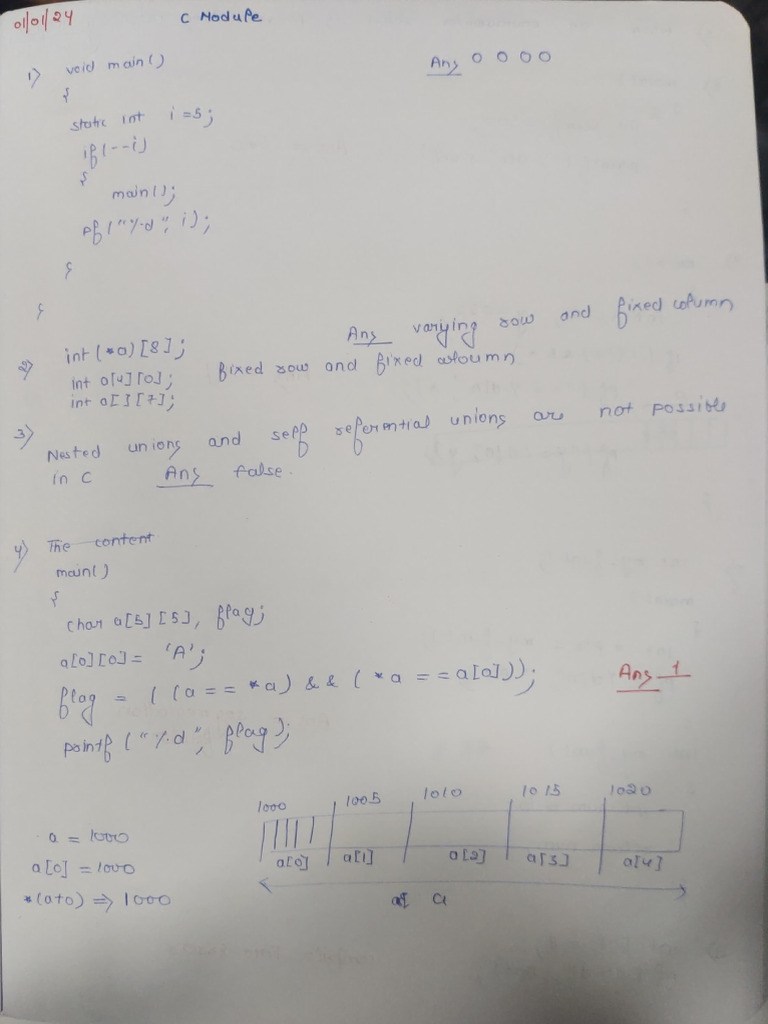 01/01/24 C Module
1) void main() Ans 0 0 0 0
{
static int i=5;
if(--i)
{
main();
pf("%d", i);
}
}
2) int (*a)[8]; Ans varying row and fixed column
int a[4][0]; fixed row and fixed coloumn
int a[][7];
3) Nested unions and self referential unions are not possible
in C Ans false.
4) The content
main()
{
char a[5][5], flag;
a[0][0] = 'A';
flag = ((a == *a) && (*a == a[0])); Ans 1
printf("%d", flag);
1000 1005 1010 1015 1020
a = 1000
a[0] = 1000 a[0] a[1] a[2] a[3] a[4]
*(a+0) ⇒ 1000 a